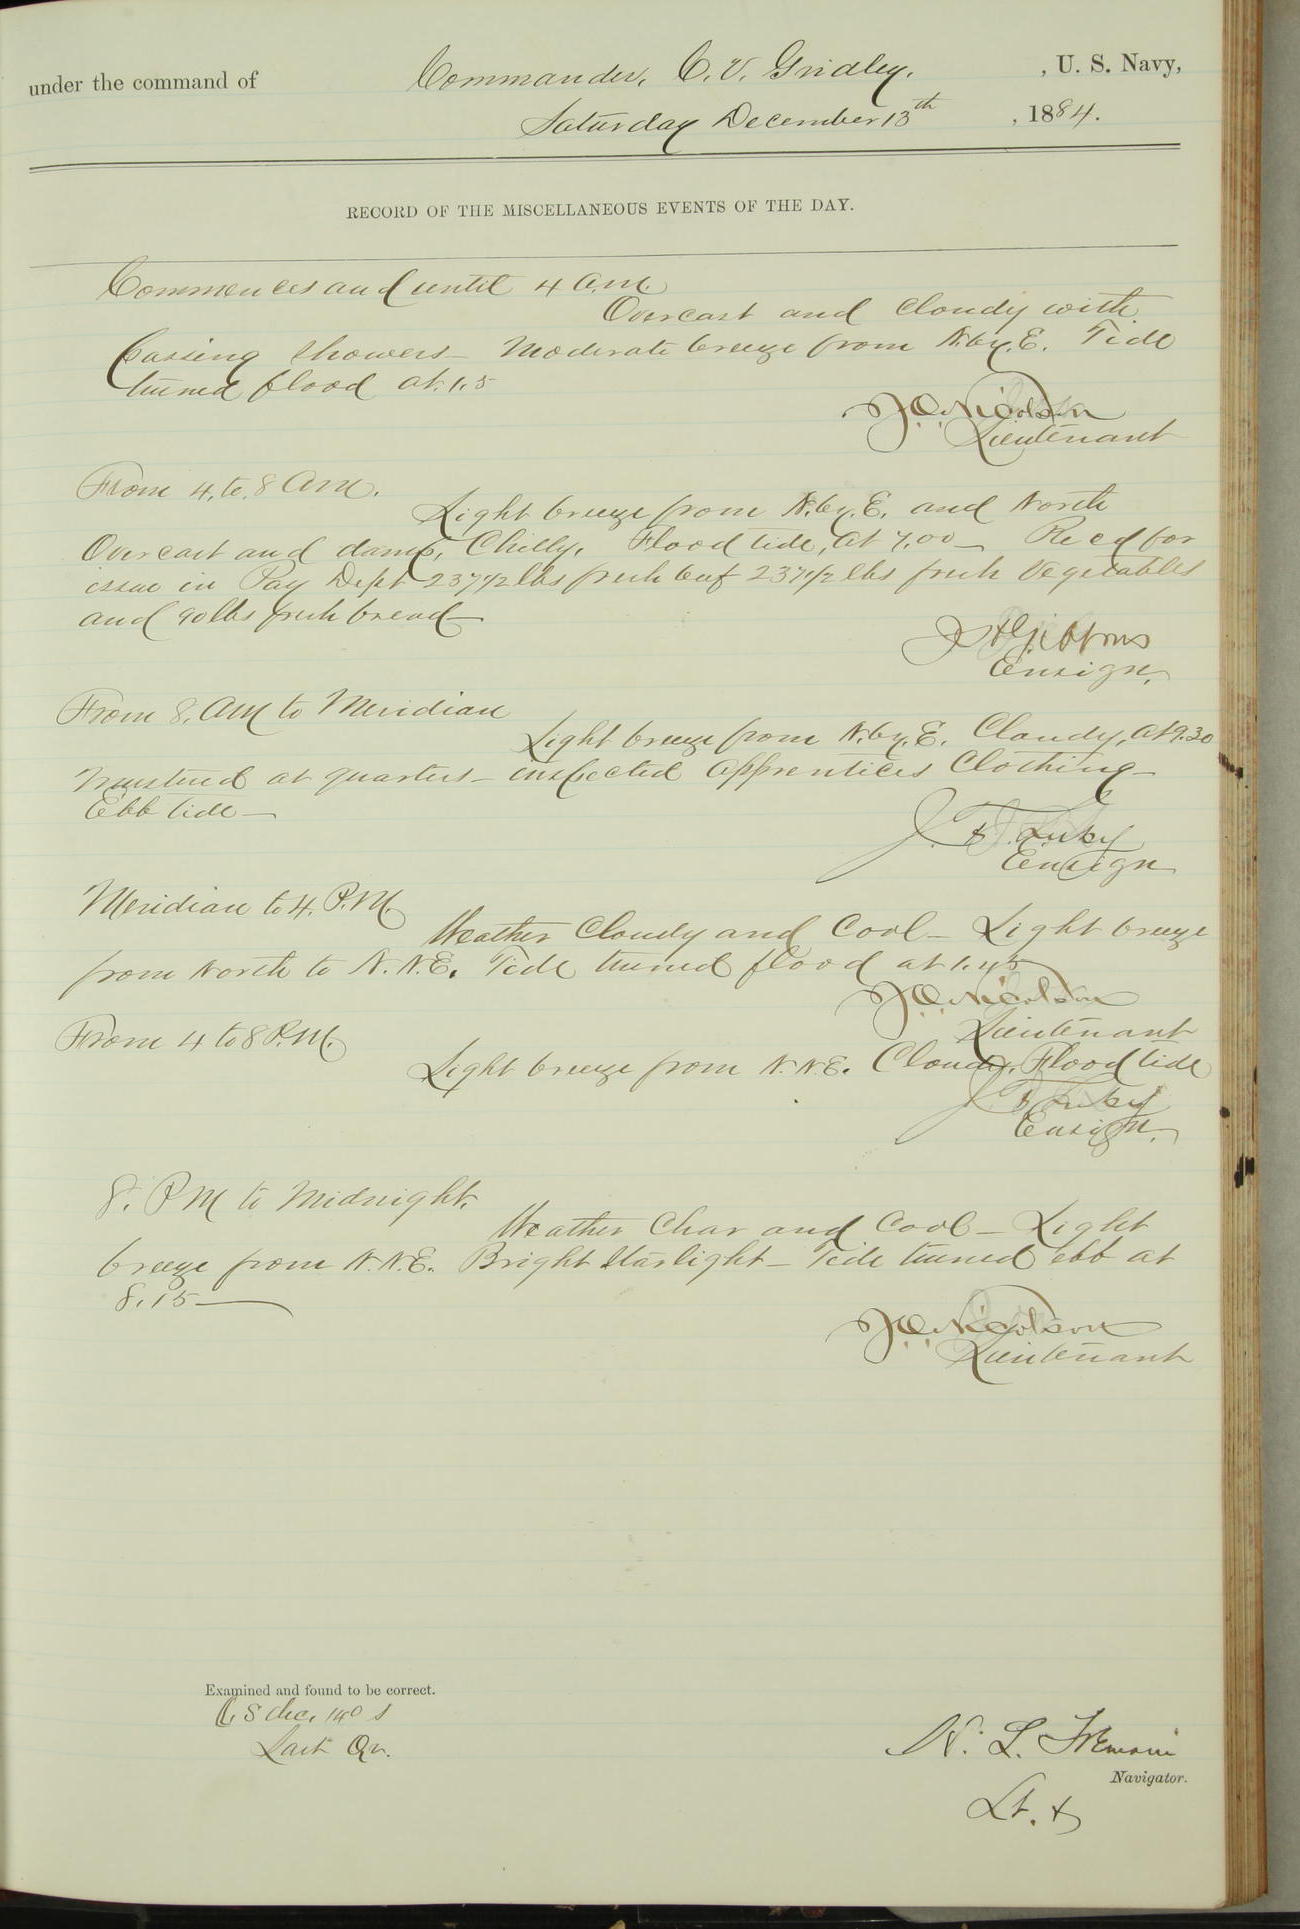 under the command of Commander, C. V. Gridley. , U. S. Navy,
Saturday December 13th , 1884.
RECORD OF THE MISCELLANEOUS EVENTS OF THE DAY.
Commences and until 4 A.M.
Overcast and cloudy with
passing showers – Moderate breeze from N.by.E. Tide
turned flood at 1.5
Lieutenant
From 4. to 8 AM.
Light breeze from N.by.E. and North
Overcast and damp, Chilly, Flood tide, at 7.00 – Recd for
issue in Pay Dept 237 1/2 lbs fresh beef 237 1/2 lbs fresh Vegetables
and 90 lbs fresh bread –
Gibbons
Ensign.
From 8. AM to Meridian
Light breeze from N.by.E. Cloudy, At 9.30
mustered at quarters – inspected apprentices Clothing –
Ebb tide –
Ensign
Meridian to 4. P.M.
Weather Cloudy and Cool – Light breeze
from North to N.N.E. Tide turned flood at 1.45
Lieutenant
From 4 to 8 P.M.
Light breeze from N.N.E. Cloudy, Flood tide
Ensign.
8. PM to Midnight.
Weather Clear and Cool – Light
breeze from N.N.E. Bright Starlight – Tide turned ebb at
8.15 –
Lieutenant
Examined and found to be correct.
Last Qr.
N. L.
Navigator.
Lt.